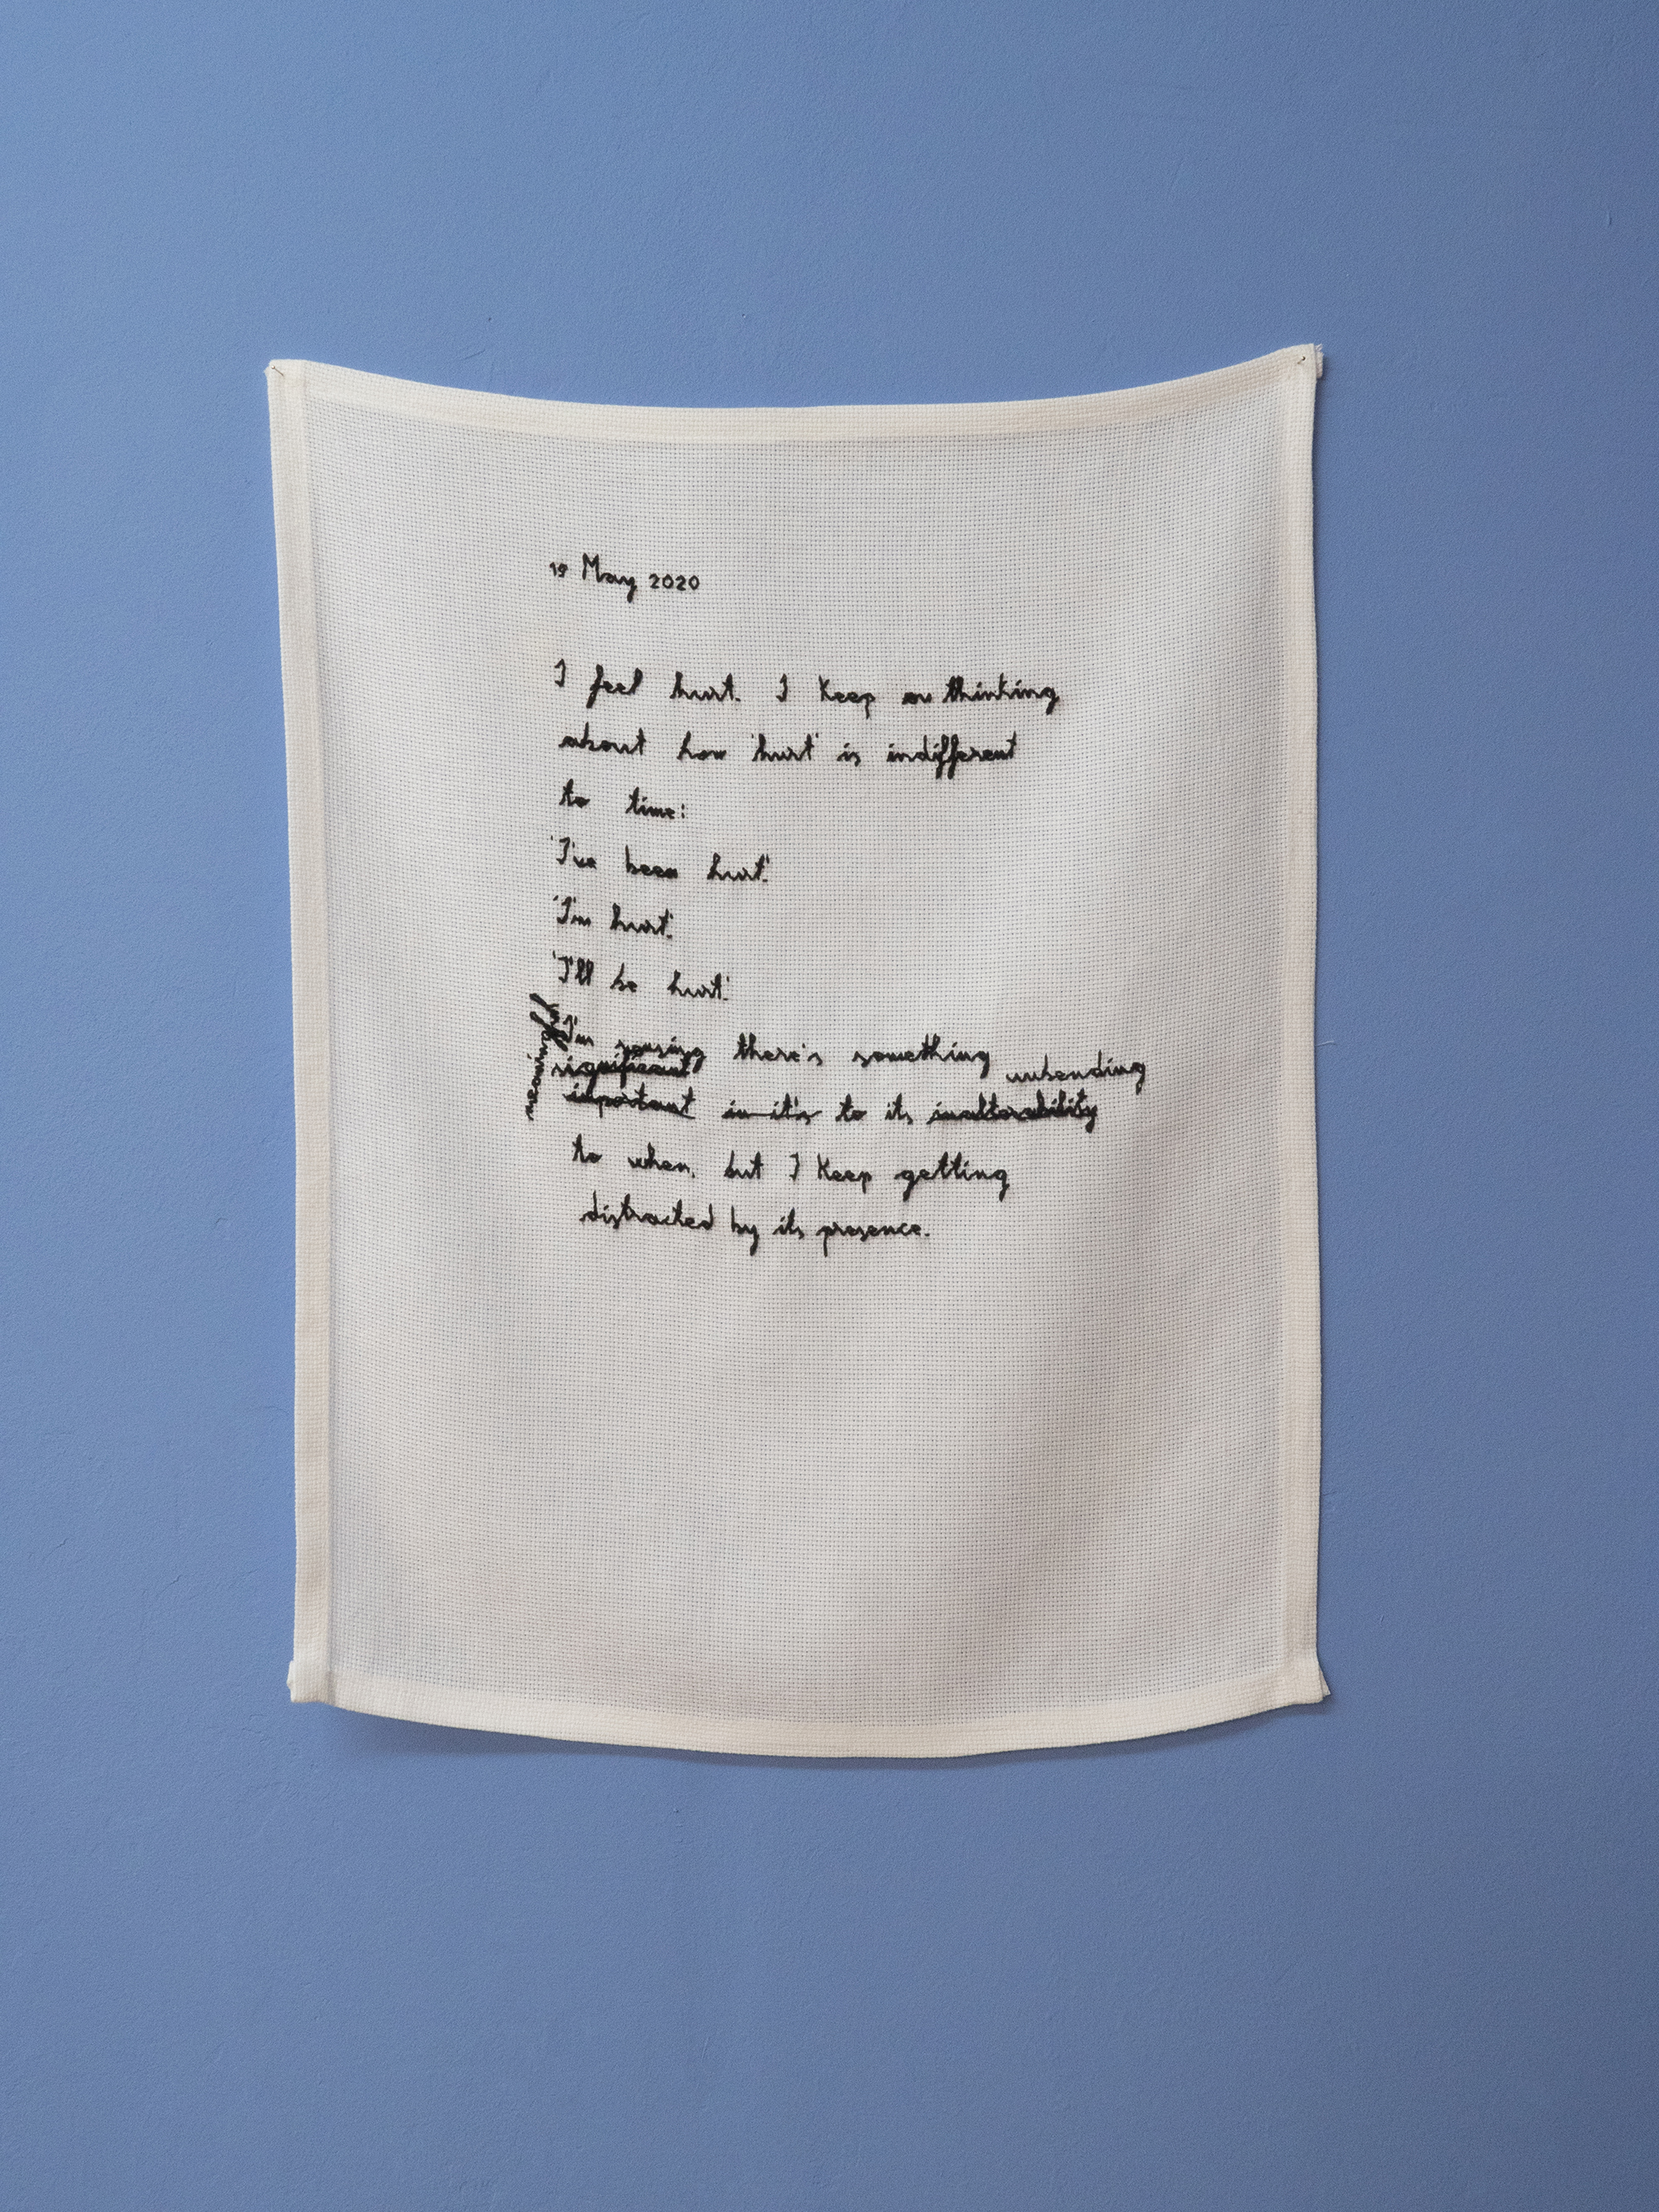 19 May 2020
I feel hurt. I keep on thinking
about how 'hurt' is indifferent
to time:
'I've been hurt'.
'I'm hurt'.
'I'll be hurt'.
meaningful
I'm sensing there's something unbending
significant
important in it's to its inalterability
to when, but I keep getting
distracted by its presence.